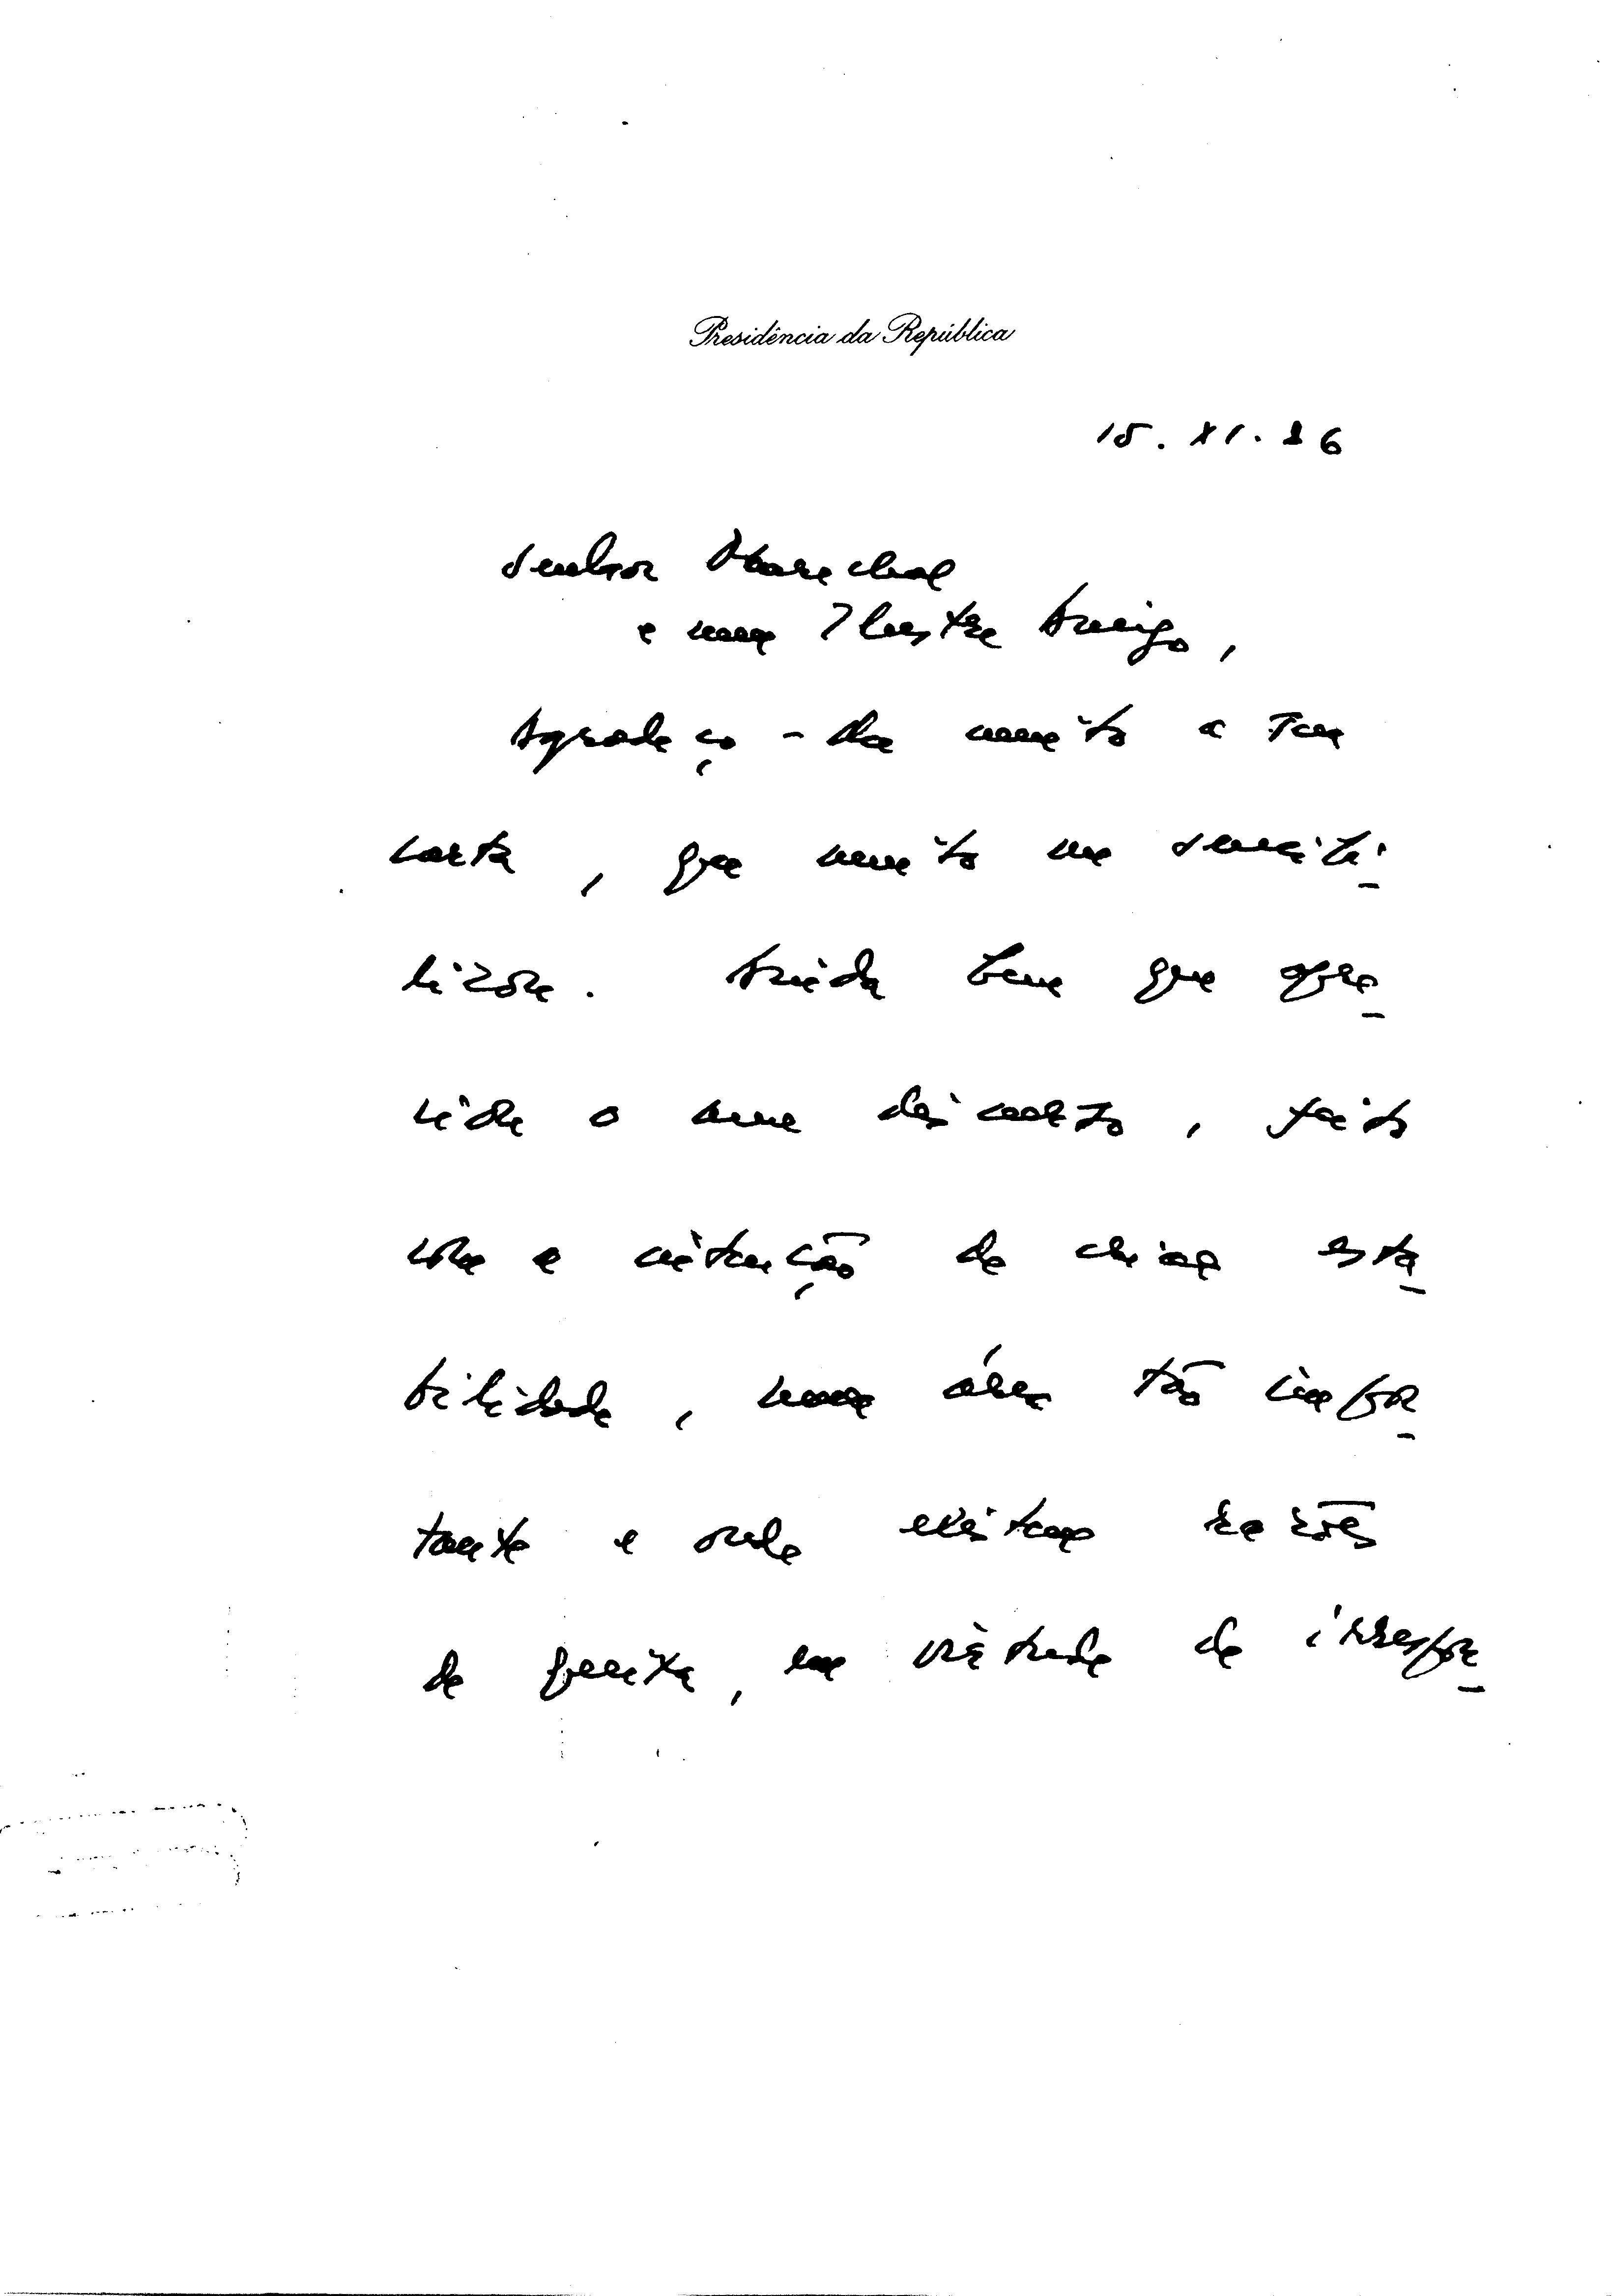 Presidência da República
15.XI.86
Senhor Marechal
e meu Ilustre Amigo,
Agradeço-lhe muito a sua
carta, que muito me sensibi-
lizou. Ainda bem que apre-
ciou o meu discurso, feito
com a intenção de criar esta-
bilidade, numa área tão impor-
tante e onde existem razões
de queixa, em virtude de irrespon-